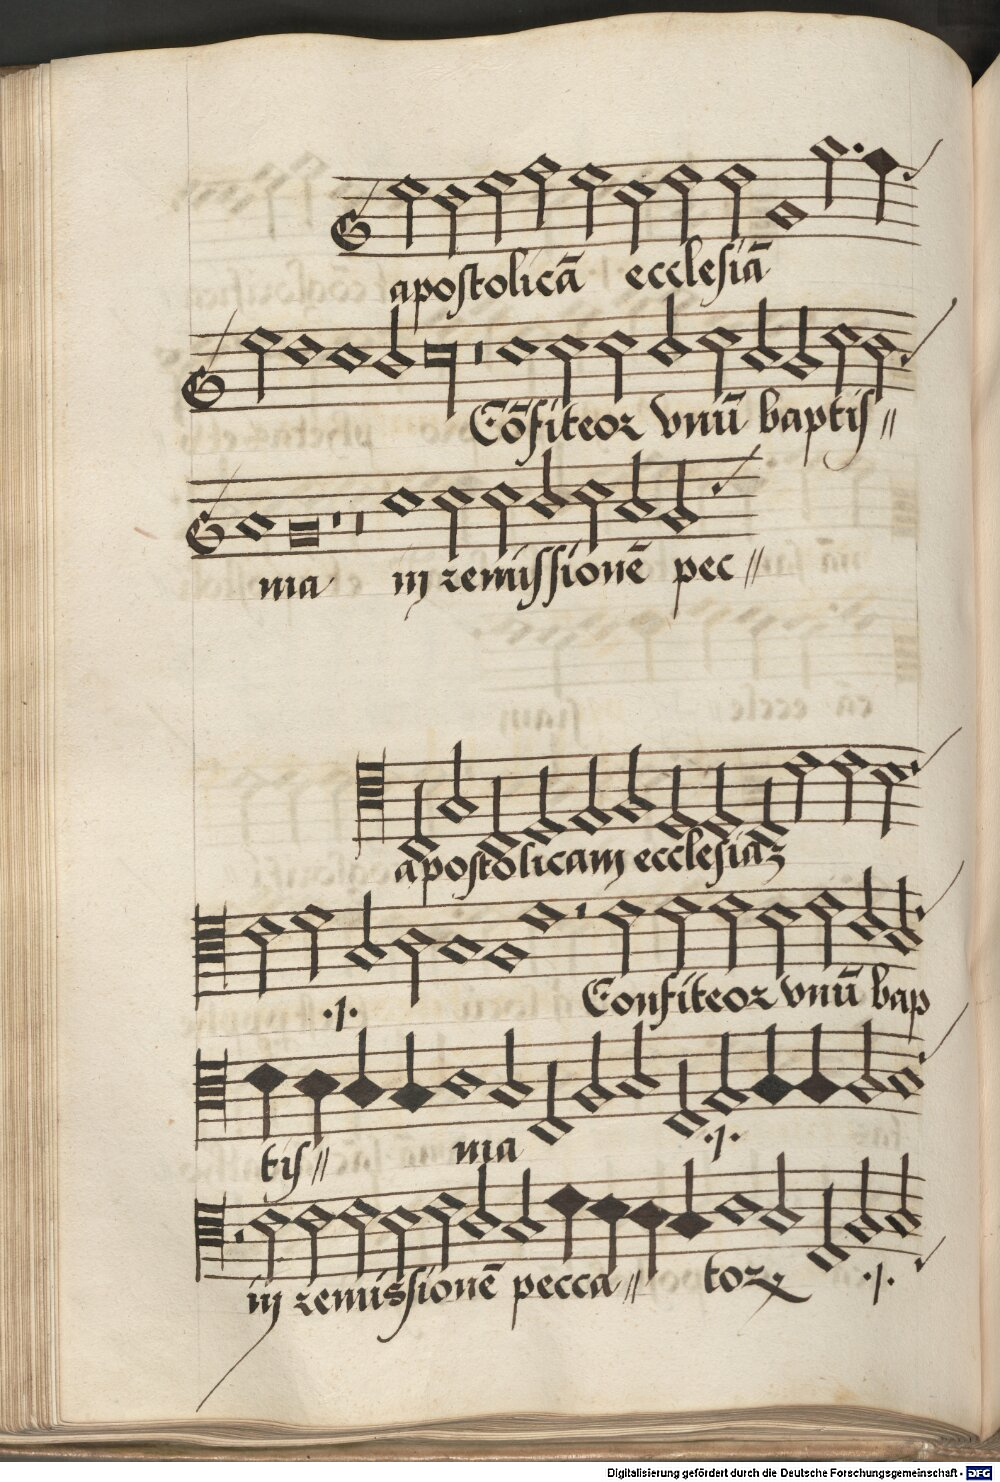 apostolicā ecclesiā
Cōfiteor vnū baptis//
ma in remissionē pec//
apostolicam ecclesiaꝫ
.1. Confiteor vnū bap
tis// ma .1.
in remissionē pecca// toꝝ .1.
Digitalisierung gefördert durch die Deutsche Forschungsgemeinschaft - DFG